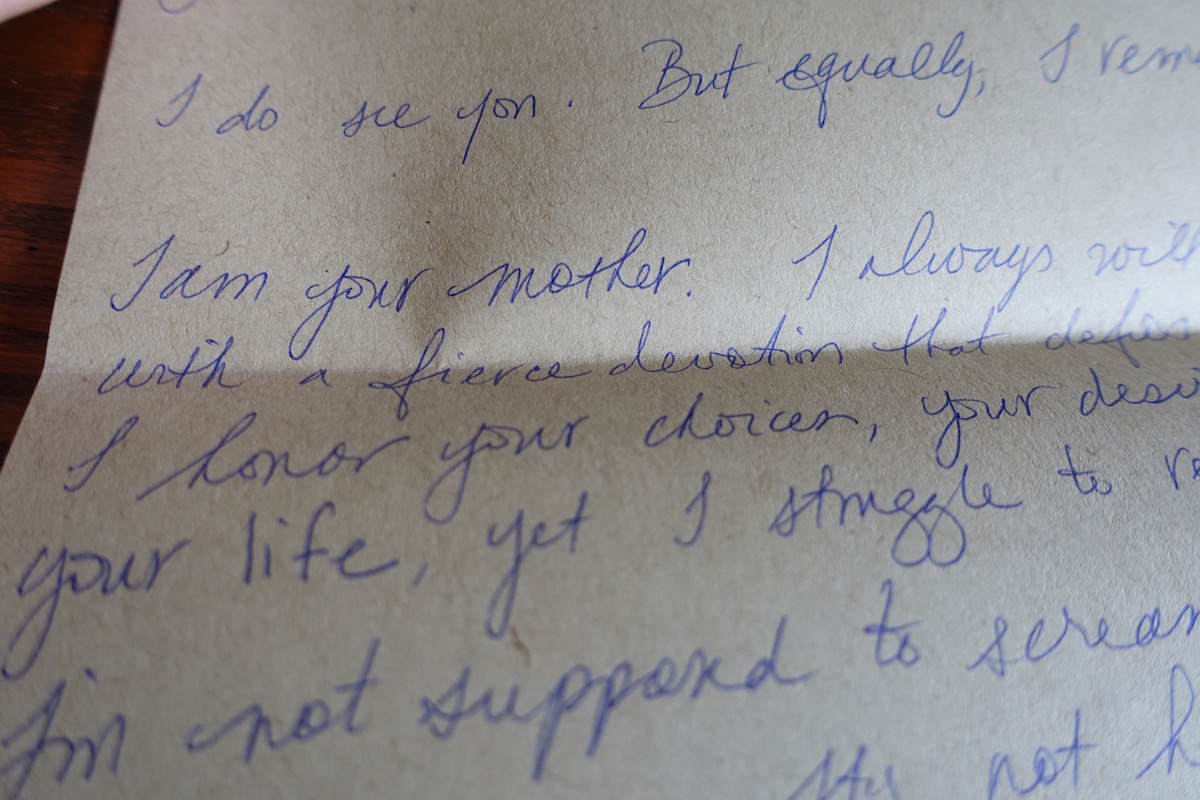 I do see you. But equally, I rem
I am your mother. I always will
with a fierce devotion that
I honor your choices, your
your life, yet I struggle to re
I'm not supposed to scream
not h